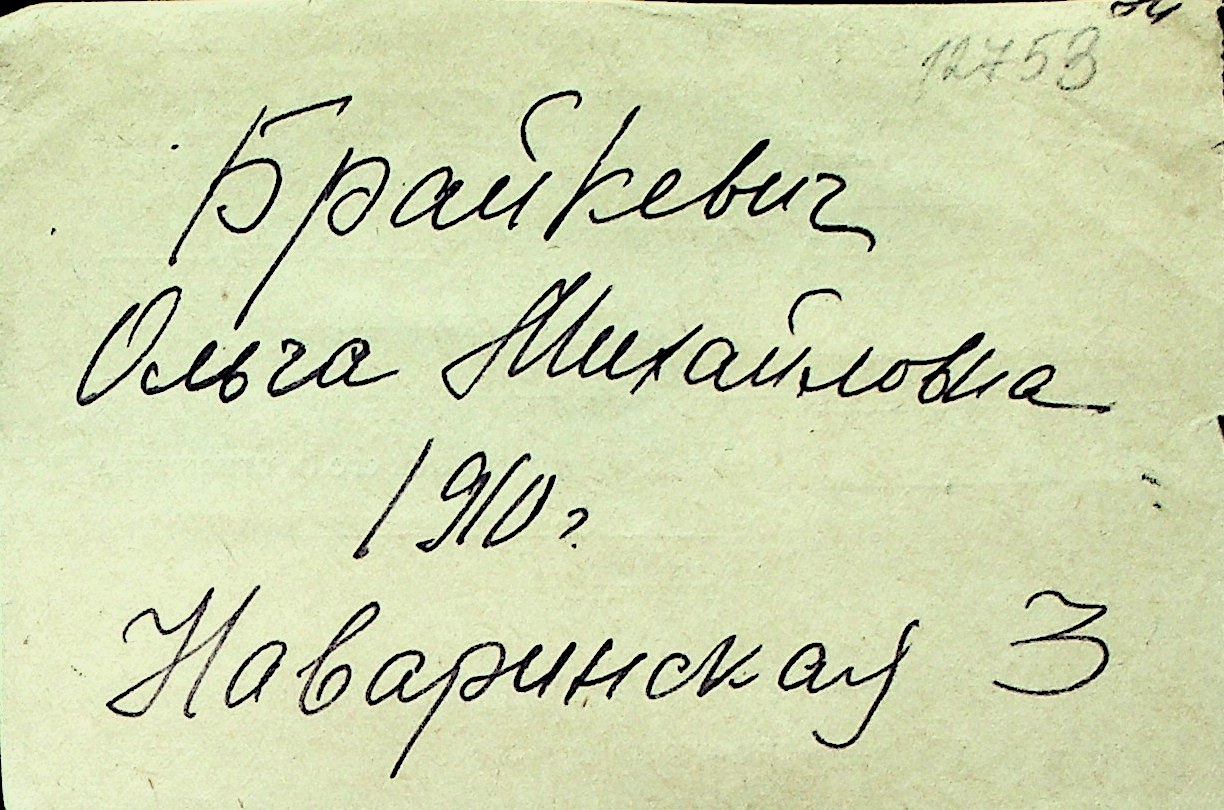 12753
Брайкевич
Ольга Михайловна
1910 г
Наваринская 3